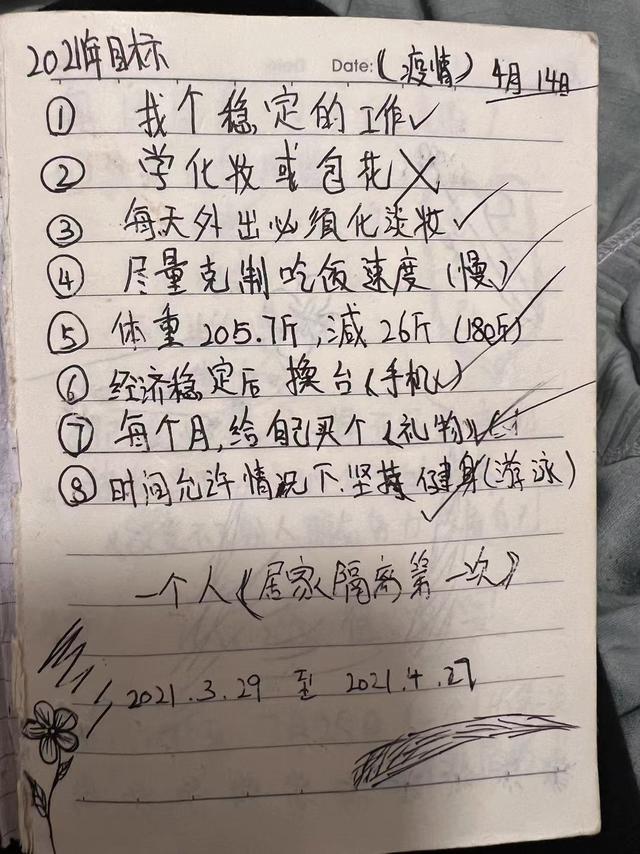 2021年目标
Date:(疫情) 4月14日
① 找个稳定的工作✓
② 学化妆或包花╳
③ 每天外出必须化淡妆✓
④ 尽量克制吃饭速度(慢)✓
⑤ 体重205.7斤,减26斤(180斤)
⑥ 经济稳定后 换台(手机)✓
⑦ 每个月,给自己买个《礼物》✓
⑧ 时间允许情况下.坚持健身(游泳)✓
一个人《居家隔离第一次》
2021.3.29 至 2021.4.27